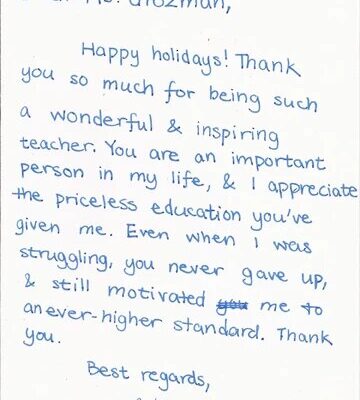 Happy holidays! Thank
you so much for being such
a wonderful & inspiring
teacher. You are an important
person in my life, & I appreciate
the priceless education you've
given me. Even when I was
struggling, you never gave up,
& still motivated you me to
an ever-higher standard. Thank
you.
Best regards,